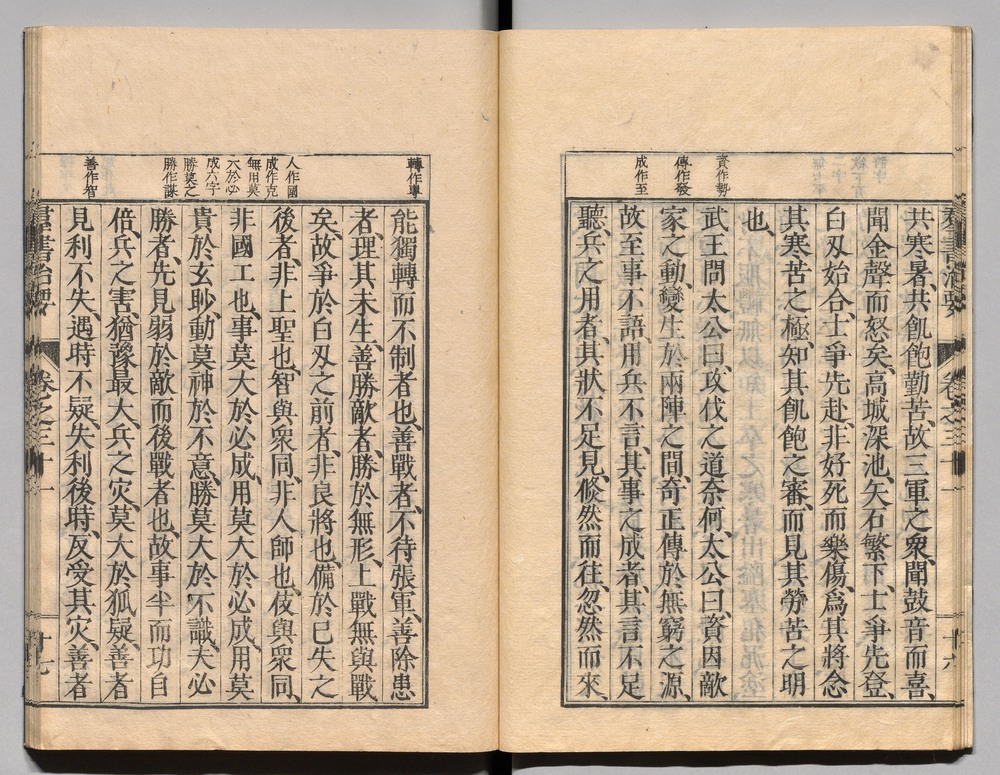 羣書治要 卷之三十一 十六
共寒暑、共飢飽勤苦、故三軍之衆、聞鼓音而喜、
聞金聲而怒矣、高城深池、矢石繁下、士爭先登、
白刃始合、士爭先赴、非好死而樂傷、爲其將念
其寒苦之極、知其飢飽之審、而見其勞苦之明
也、
武王問太公曰、攻伐之道奈何、太公曰、資因敵
家之動、變生於兩陣之間、奇正傳於無窮之源、
故至事不語、用兵不言、其事之成者、其言不足
聽、兵之用者、其狀不足見、倏然而往、忽然而來、
資作勢
傳作發
成作至
能獨轉而不制者也、善戰者、不待張軍、善除患
者、理其未生、善勝敵者、勝於無形、上戰無與戰
矣、故爭於白刃之前者、非良將也、備於已失之
後者、非上聖也、智與衆同、非人師也、伎與衆同、
非國工也、事莫大於必成、用莫大於必成、用莫
貴於玄眇、動莫神於不意、勝莫大於不識、夫必
勝者、先見弱於敵而後戰者也、故事半而功自
倍、兵之害、猶豫最大、兵之灾、莫大於狐疑、善者
見利不失、遇時不疑、失利後時、反受其灾、善者
轉作專
人作國
成作克
無用莫
大於必
成六字
勝莫之
勝作謀
善作智
羣書治要 卷之三十一 十七